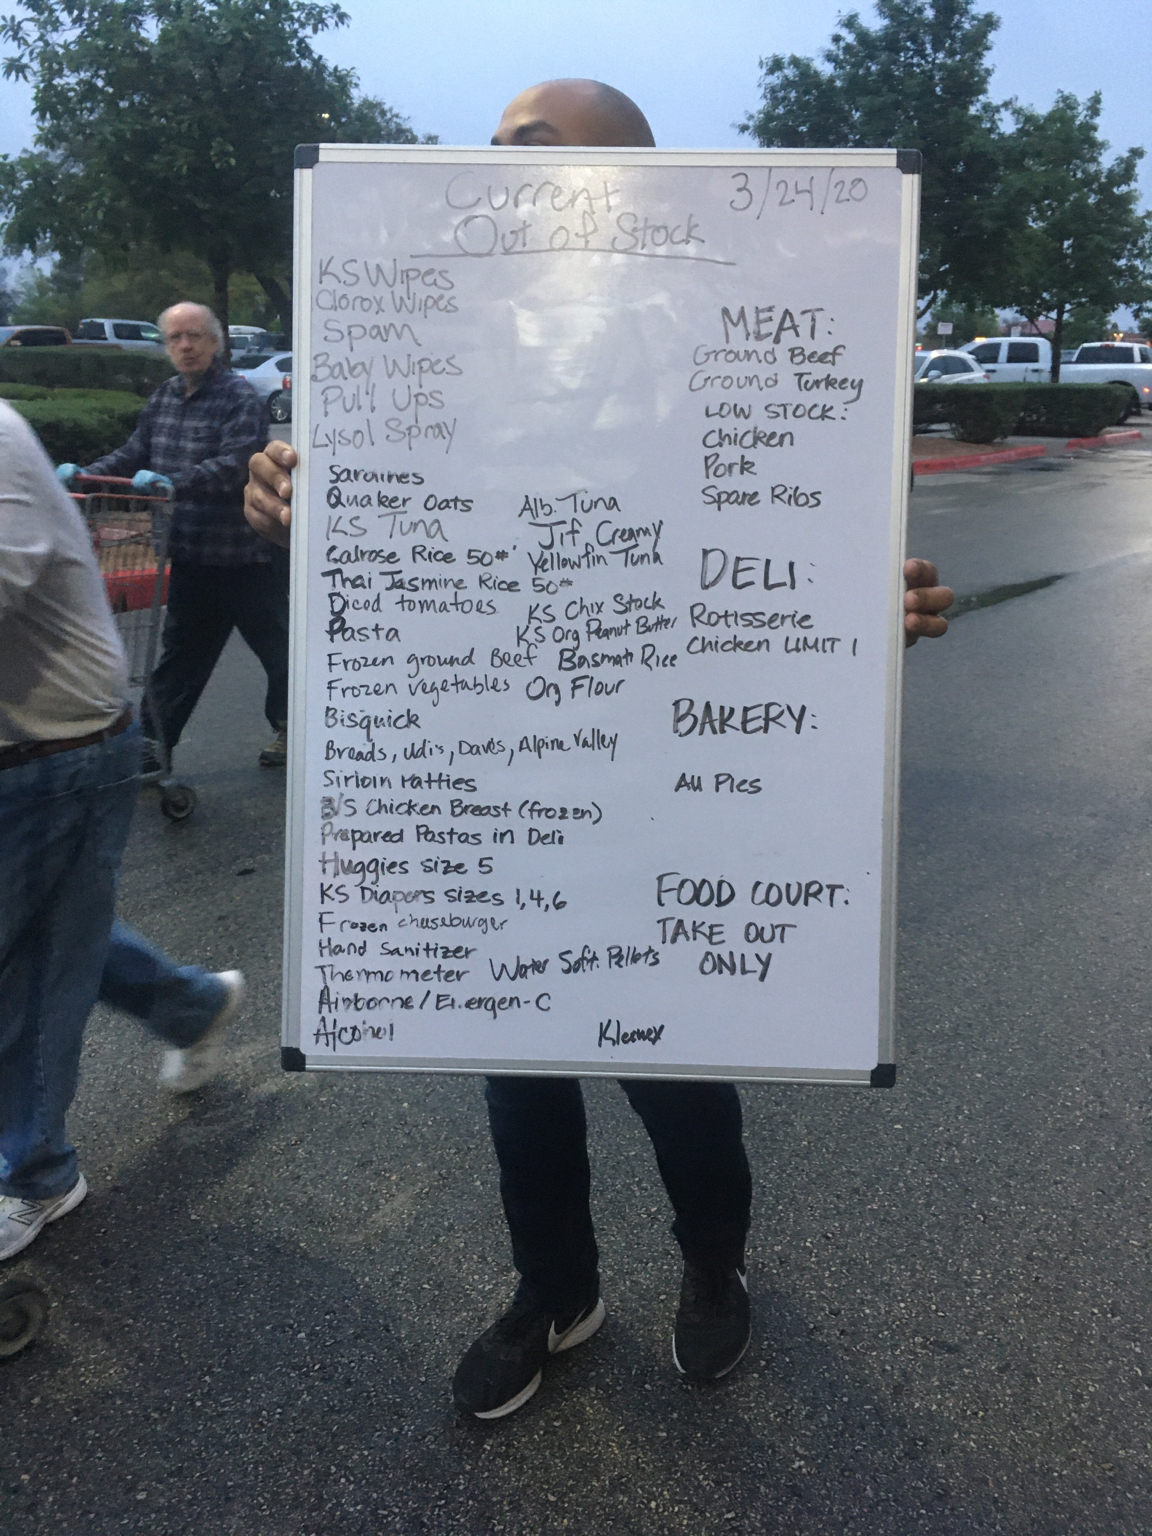 Current
Out of Stock
3/24/20
KS Wipes
Clorox Wipes
Spam
Baby Wipes
Pull Ups
Lysol Spray
Sardines
Quaker Oats
KS Tuna
Calrose Rice 50#
Thai Jasmine Rice 50#
Diced tomatoes
Pasta
Frozen ground Beef
Frozen vegetables
Bisquick
Breads, Udi's, Daves, Alpine Valley
Sirloin Patties
B/S Chicken Breast (frozen)
Prepared Pastas in Deli
Huggies size 5
KS Diapers sizes 1,4,6
Frozen cheeseburger
Hand Sanitizer
Thermometer
Airborne/Emergen-C
Alcohol
Alb. Tuna
Jif Creamy
Yellowfin Tuna
KS Chix Stock
KS Org Peanut Butter
Basmati Rice
Org Flour
Water Soft. Pellets
Kleenex
MEAT:
Ground Beef
Ground Turkey
LOW STOCK:
Chicken
Pork
Spare Ribs
DELI:
Rotisserie
Chicken LIMIT 1
BAKERY:
All Pies
FOOD COURT:
TAKE OUT
ONLY